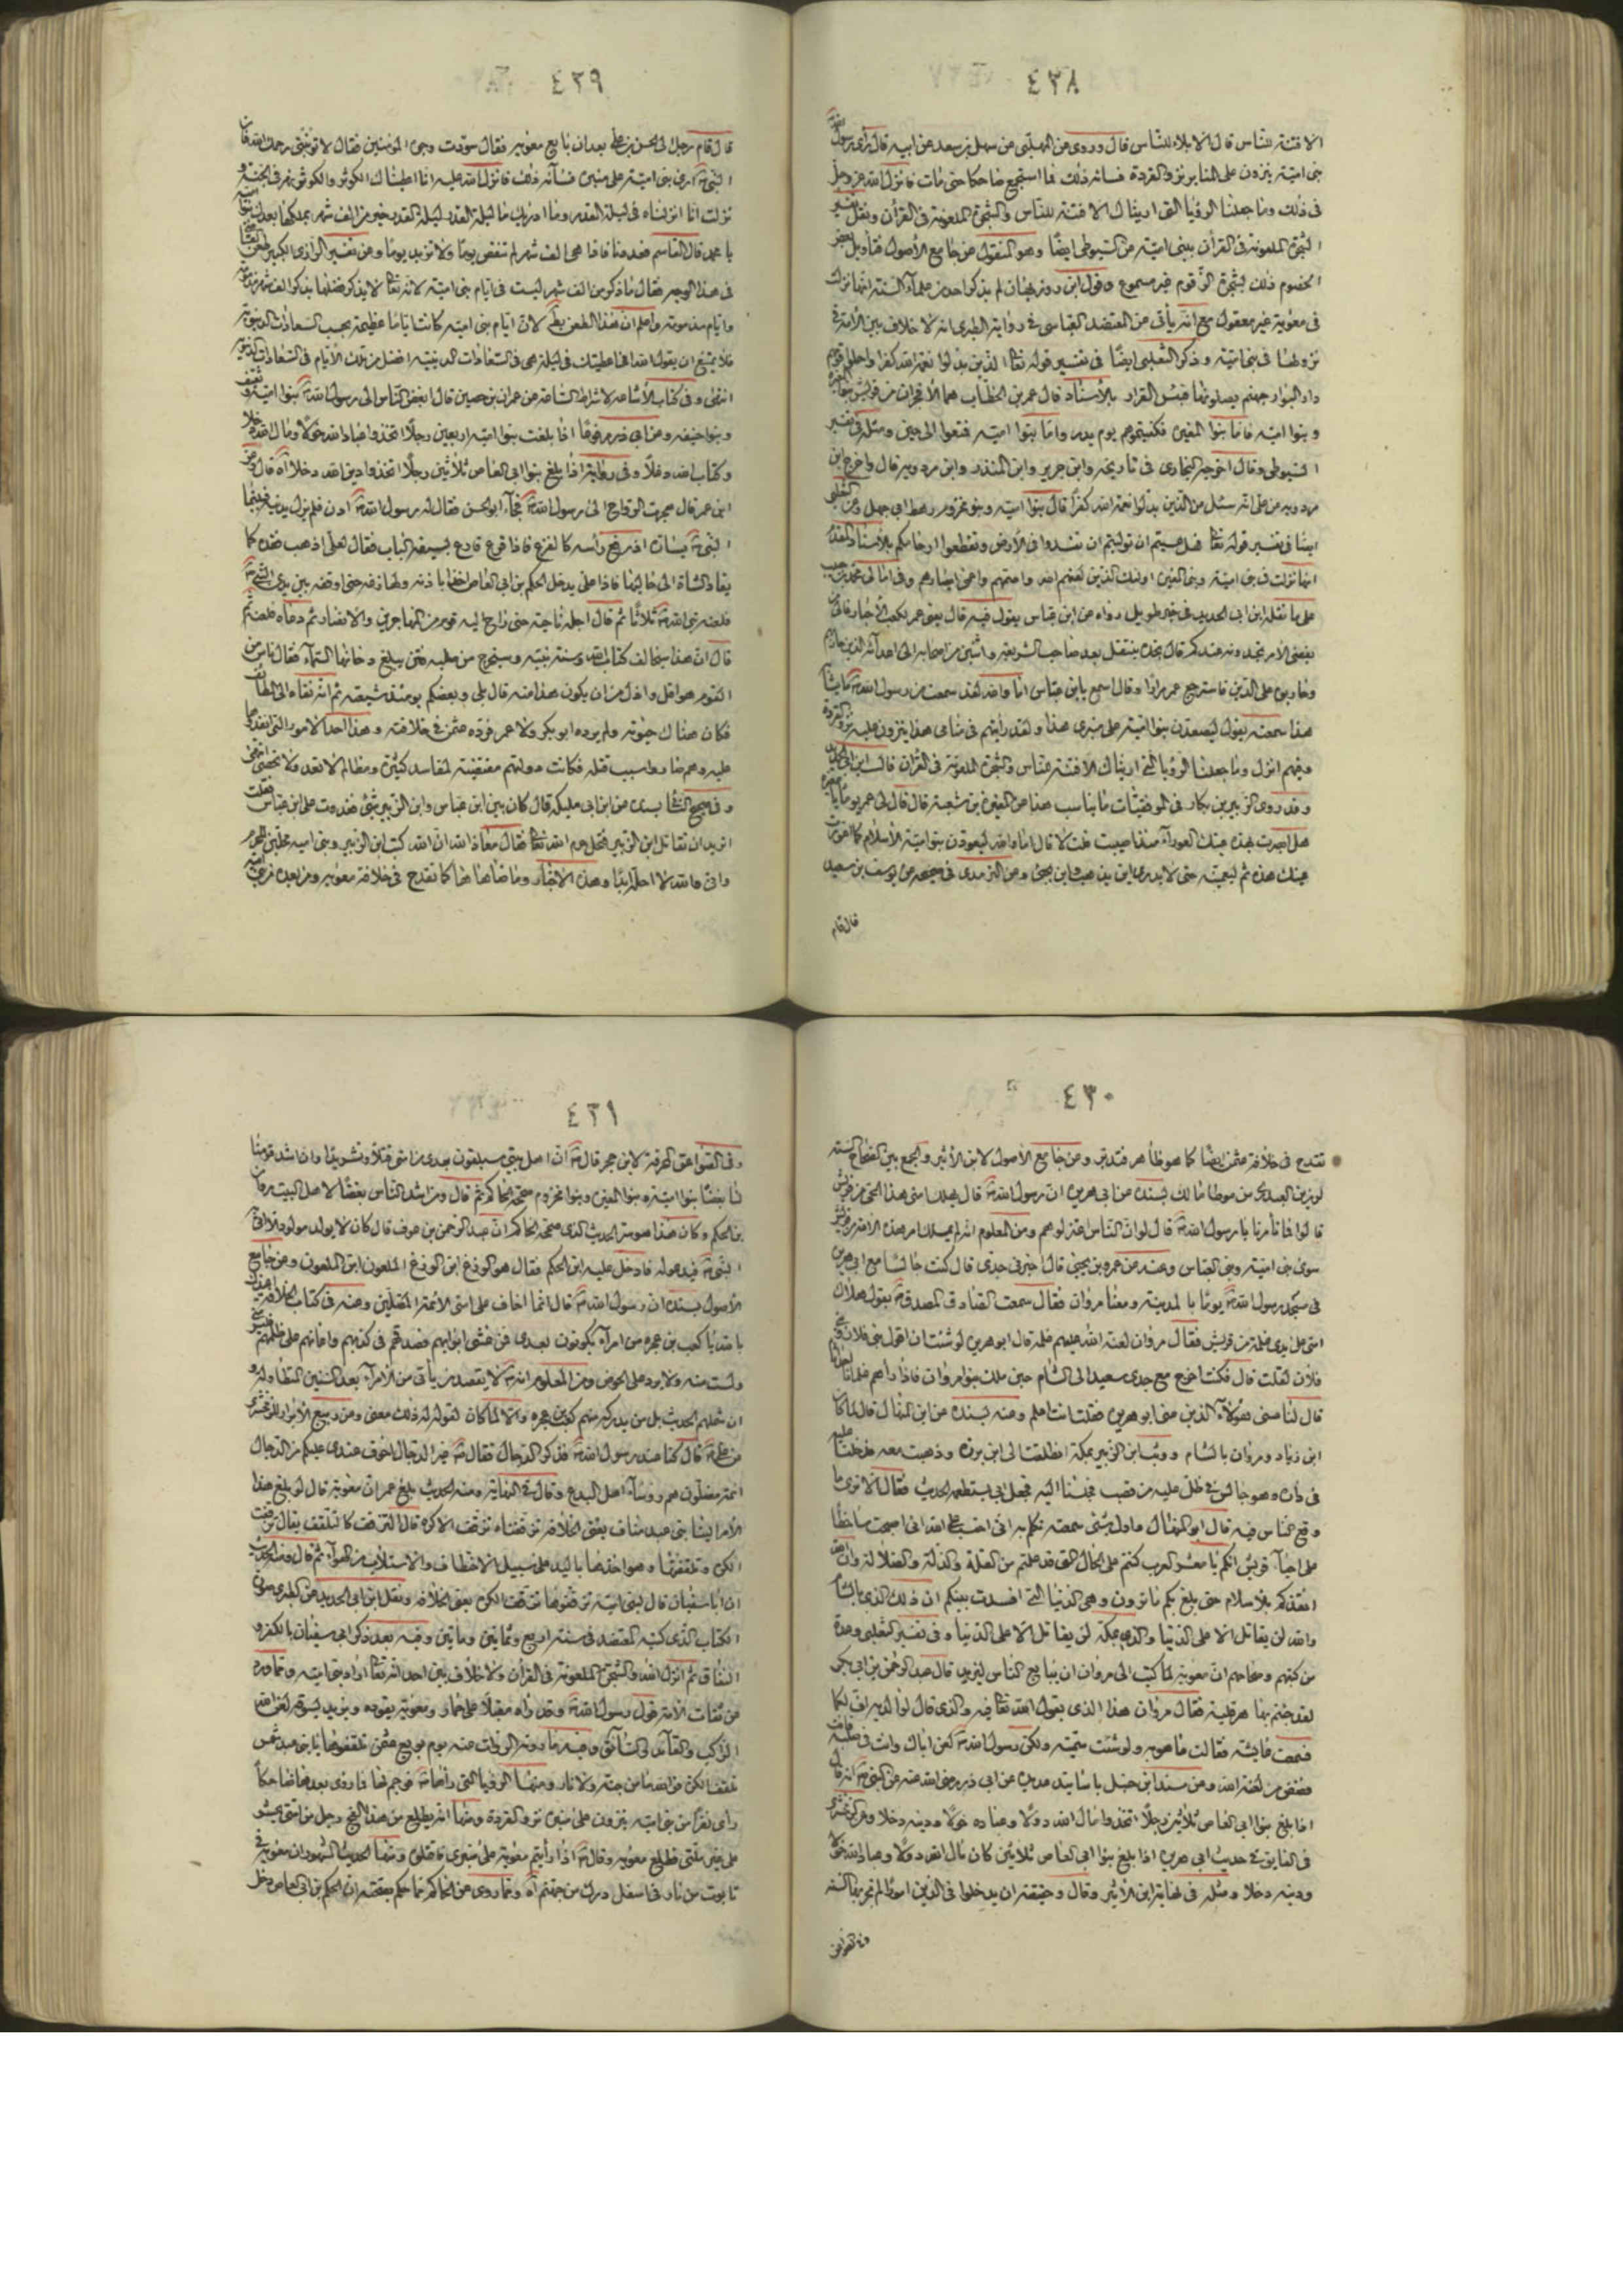 ٤٢٨
الا فتنة للناس قال الا بلاء للناس قال وروى عن المهلبى عن سهل بن سعد عن ابيه قال رأى رسول الله
بنى اميّة ينزون على المنابر نزو القردة فساءه ذلك فما استجمع ضاحكا حتى مات فانزل الله عز وجل
فى ذلك وما جعلنا الرؤيا التى اريناك الا فتنة للناس والشجرة الملعونة فى القرآن ونقل تفسير
الشجرة الملعونة فى القرآن ببنى اميّة عن السيوطى ايضًا وهو المنقول عن جامع الاصول فتأويل بعض
الخصوم ذلك بشجرة الزقوم غير مسموع وقول ابن روزبهان لم يذكر احد من علماء السنة انها نزلت
فى معوية غير معقول مع انه يأتى عن المعتضد العباسى فى رواية الطبرى انه لا خلاف بين الامة فى
نزولها فى بنى اميّة وذكر الثعلبى ايضًا فى تفسير قوله تعا الذين بدلوا نعمة الله كفرا واحلوا قومهم
دار البوار جهنم يصلونها فبئس القرار بالاسناد قال عمر بن الخطاب هما الافجران من قريش بنو المغيرة
وبنوا اميّة فاما بنوا المغيرة فكفيتموهم يوم بدر واما بنوا اميّة فتمتعوا الى حين ومثله فى تفسير
السيوطى وقال اخرجه البخارى فى تاريخه وابن جرير وابن المنذر وابن مردويه قال واخرج ابن
مردويه عن على انه سئل عن الذين بدلوا نعمة الله كفرًا قال بنوا اميّة وبنو مخزوم رهط ابى جهل وعن الثعلبى
ايضًا فى تفسير قوله تعا فهل عسيتم ان توليتم ان تفسدوا فى الارض وتقطعوا ارحامكم بالاسناد
انها نزلت فى بنى اميّة وبنى المغيرة اولئك الذين لعنهم الله واصمهم واعمى ابصارهم وفى امالى محمد بن حبيب
على ما نقله ابن ابى الحديد فى خبر طويل رواه عن ابن عباس يقول فيه قال يعنى عمر لكعب الاحبار
يفضى الامر تجدونه عندكم قال نجده ينتقل بعد صاحب الشريعة واثنين من اصحابه الى اعدائه الذين حاربهم
وحاربوه على الدين فاسترجع عمر مرارًا وقال اسمع يابن عباس اما والله لقد سمعت من رسول الله ما يشابه
هذا سمعته يقول ليصعدن بنوا اميّة على منبرى هذا ولقد رأيتهم فى منامى هذا ينزون عليه نزو القردة
وفيهم انزل وما جعلنا الرؤيا التى اريناك الا فتنة للناس والشجرة الملعونة فى القرآن قال ابن ابى الحديد
وقد روى الزبير بن بكار فى الموفقيات ما يناسب هذا عن المغيرة بن شعبة قال قال لى عمر يومًا يا مغيرة
هل ابصرت بهذه عينك العوراء منذ اصيبت قلت لا قال اما والله ليعورن بنو اميّة الاسلام كما اعورت
عينك هذه ثم ليعمينه حتى لا يدرى اين يذهب واين يجئ وعن الترمدى فى صحيحه عن يوسف بن سعيد
قال قام
٤٢٩
قال قام رجل الى الحسن بن على بعد ان بايع معوية فقال سوّدت وجوه المؤمنين فقال لا تؤنبنى رحمك الله فان
النبى ارى بنى اميّة على منبره فساءه ذلك فانزل الله عليه انا اعطيناك الكوثر والكوثر نهر فى الجنة و
نزلت انا انزلناه فى ليلة القدر وما ادراك ما ليلة القدر ليلة القدر خير من الف شهر يملكها بعدك بنو اميّة
يا محمد قال القاسم فعددنا فاذا هى الف شهر لم تنقص يومًا ولا تزيد يومًا وعن تفسير الرازى الكبير طعن القاضى
فى هذا الوجه فقال ما ذكر من الف شهر ليست فى ايام بنى اميّة لانه تعا لا يذكر فضلها بذكر الف شهر مذمومة
وايام مذمومة واعلم ان هذا الطعن لان ايام بنى اميّة كانت اياما عظيمة بحسب السعادات الدنيوية
فلا يمتنع ان يقول الله انى اعطيتك فى ليلة هى فى السعادات الدينية افضل من تلك الايام فى السعادات الدنيوية
انتهى وفى كتاب الاشاعة لاشراط الساعة عن عمران بن حصين قال ابغض الناس الى رسول الله بنوا اميّة وثقيف
وبنوا حنيفة وعن ابى ذر مرفوعًا اذا بلغت بنوا اميّة اربعين رجلًا اتخذوا عباد الله خولًا ومال الله دخلا
وكتاب الله دغلًا وفى رواية اذا بلغ بنوا ابى العاص ثلاثين رجلًا اتخذوا دين الله دخلا اه قال وعن
ابن عمر قال هجرت الرواح الى رسول الله فجاء ابو الحسن فقال له رسول الله ادن فلم يزل يدنيه فبينما
النبى يساره اذ رفع رأسه كالفزع فاذا قرع قارع بسيفه الباب فقال لعلى اذهب فقده كما
يقاد الشاة الى حالبها فاذا على يدخل الحكم بن ابى العاص اخذًا باذنه ولها زنمة حتى اوقفه بين يدى النبى
فلعنه نبى الله ثلاثًا ثم قال اجله ناحية حتى راح اليه قوم من المهاجرين والانصار ثم دعاه فلعنه ثم
قال ان هذا سيخالف كتاب الله وسنة نبيه وسيخرج من صلبه فتن يبلغ دخانها السماء فقال ناس من
القوم هو اقل واذل من ان يكون هذا منه قال بلى وبعضكم يومئذ شيعته ثم انه نفاه الى الطائف
فكان هناك حيوته ولم يرده ابو بكر ولا عمر فرده عثمن فى خلافته وهذا احد الامور التى انتقدها
عليه وهم ضا وا سبب قتله فكانت دولتهم مقتضية لمفاسد كثيرة ومظالم لا تعد ولا تحصى انتهى
وفى صحيح بسنده عن ابن ابى مليكة قال كان بين ابن عباس وابن الزبير شئ فغدوت على ابن عباس فقلت
اتريد ان تقاتل ابن الزبير فتحل حرم الله تعا فقال معاذ الله ان الله كتب ابن الزبير وبنى امية محلين للحرم
وانى والله لا احله ابدًا وهذه الاخبار وما ضاهاها كما تقدح فى خلافة معوية ومن بعده من بنى اميّة
٤٣٠
تقدح فى خلافة عثمن ايضًا كما هو ظاهر فتدبر وعن جامع الاصول لابن الاثير والجمع بين الصحاح الستة
لرزين العبدرى من موطا مالك بسنده عن ابى هريرة ان رسول الله قال يهلك امتى هذا الحى من قريش
قالوا فما تأمرنا يا رسول الله قال لو ان الناس اعتزلوهم ومن المعلوم انه لم يهلك امر هذه الامة من قريش
سوى بنى اميّة وبنى العباس وعنه عن عمرو بن يحيى قال اخبرنى جدى قال كنت جالسًا مع ابى هريرة
فى مسجد رسول الله يومًا بالمدينة ومعنا مروان فقال سمعت الصادق المصدق يقول هلاك
امتى على يدى غلمة من قريش فقال مروان لعنة الله عليهم غلمة قال ابو هريرة لو شئت ان اقول بنى فلان وبنى
فلان لفعلت قال فكنت اخرج مع جدى سعيد الى الشام حين ملك بنو مروان فاذا رأهم غلمانا احداثا
قال لنا عسى هؤلاء الذين عنى ابو هريرة فقلت انت اعلم وعنه بسنده عن ابن المنهال قال لما كان
ابن زياد ومروان بالشام ووثب ابن الزبير بمكة انطلقت الى ابى برزة وذهبت معه فدخلنا عليه
فى داره وهو جالس فى ظل علية من قصب فجلسنا اليه فجعل ابى يستطعمه الحديث فقال الا ترى ما
وقع الناس فيه قال ابو المنهال فاول شئ سمعته تكلم به انى احتسب على الله انى اصبحت ساخطًا
على احياء قريش انكم يا معشر العرب كنتم على الحال التى قد علمتم من القلة والذلة والضلالة وان الله
انقذكم بالاسلام حتى بلغ بكم ما ترون وهى الدنيا التى افسدت بينكم ان ذلك الذى بالشام
والله لن يقاتل الا على الدنيا والذى بمكة لن يقاتل الا على الدنيا وفى تفسير الثعلبى وعدة
من كتبهم وصحاحهم ان معوية لما كتب الى مروان ان يبايع الناس ليزيد قال عبد الرحمن بن ابى بكر
لقد جئتم بها هرقلية فقال مروان هذا الذى يقول الله تعا فيه والذى قال لوالديه اف لكما
فسمعت عايشة فقالت ما هو به ولو شئت سميته ولكن رسول الله لعن اباك وانت فى صلبه فانت
فضض من لعنة الله وعن مسند ابن حنبل باسانيد عديدة عن ابى ذر رضى الله عنه عن النبى انه قال
اذا بلغ بنوا ابى العاص ثلاثين رجلًا اتخذوا مال الله دولًا وعباده خولًا ودينه دخلا وعن الزمخشرى
فى الفايق فى حديث ابى هريرة اذا بلغ بنوا ابى العاص ثلاثين كان مال الله دولًا وعباد الله خولا
ودينه دخلا ومثله فى نهاية ابن الاثير وقال وحقيقته ان يدخلوا فى الدين امورًا لم تجر بها السنة
وفى الصواعق
٤٣١
وفى الصواعق المحرقة لابن حجر قال ان اهل بيتى سيلقون بعدى من امتى قتلًا وتشريدًا وان اشد قومنا
لنا بغضًا بنوا اميّة وبنوا المغيرة وبنوا مخزوم صححه الحاكم ثم قال ومن اشد الناس بغضًا لاهل البيت مروان
بن الحكم وكان هذا هو سر الحديث الذى صححه الحاكم ان عبد الرحمن بن عوف قال كان لا يولد مولود الا اتى
النبى فيدعو له فادخل عليه ابن الحكم فقال هو الوزغ ابن الوزغ الملعون ابن الملعون وعن جامع
الاصول بسنده ان رسول الله قال انما اخاف على امتى الائمة المضلين وعنه فى كتاب الخلافة اعيذك
بالله يا كعب بن عجرة من امراء يكونون بعدى فمن غشى ابوابهم فصدقهم فى كذبهم واعانهم على ظلمهم فليس منى
ولست منه ولا يرد على الحوض ومن المعلوم انه لا يقصد من يأتى من الامراء بعد السنين المتطاولة و
ان شملهم الحديث بل من يدركه منهم كعب بن عجرة والا لما كان لقوله له ذلك معنى وعن ربيع الابرار للزمخشرى
عن على قال كنا عند رسول الله فذكر الدجال فقال غير الدجال اخوف عندى عليكم من الدجال
ائمة مضلون هم رؤساء اهل البدع وقال فى النهاية ومنه الحديث بلغ عمر ان معوية قال لو بلغ هذا
الامر الينا بنى عبد مناف يعنى الخلافة تزقفناه تزقف الاكرة قال التزقف كالتلقف يقال تزقفت
الكرة وتلقفتها وهو اخذها باليد على سبيل الاختطاف والاستلاب من الهواء ثم قال ومنه الحديث
ان ابا سفيان قال لبنى اميّة تزقفوها تزقف الكرة يعنى الخلافة ونقل ابن ابى الحديد عن الطبرى صورة
الكتاب الذى كتبه المعتضد فى سنة اربع وثمانين ومأتين وفيه بعد ذكر ابى سفيان بالكفر و
النفاق ثم انزل الله والشجرة الملعونة فى القرآن ولا خلاف بين احد انه تعا اراد بنى اميّة ومما ورد
عن ثقات الامة قول رسول الله وقد رآه مقبلًا على حمار ومعوية يقوده ويزيد يسوقه لعن الله
الراكب والقائد والسائق ومنه ما روته الرواة عنه يوم بويع عثمن تلقفوها يا بنى عبد شمس
تلقف الكرة فوالله ما من جنة ولا نار ومنها الرؤيا التى رآها فوجم لها فما رؤى بعدها ضاحكًا
رأى نفرًا من بنى اميّة ينزون على منبره نزو القردة ومنها انه يطلع من هذا الفج رجل من امتى يحشر
على غير ملتى فطلع معوية وقال اذا رأيتم معوية على منبرى فاقتلوه ومنها الحديث المشهور ان معوية فى
تابوت من نار فى اسفل درك من جهنم اه ومما روى عن الحاكم مما حكم بصحته ان الحكم بن ابى العاص دخل